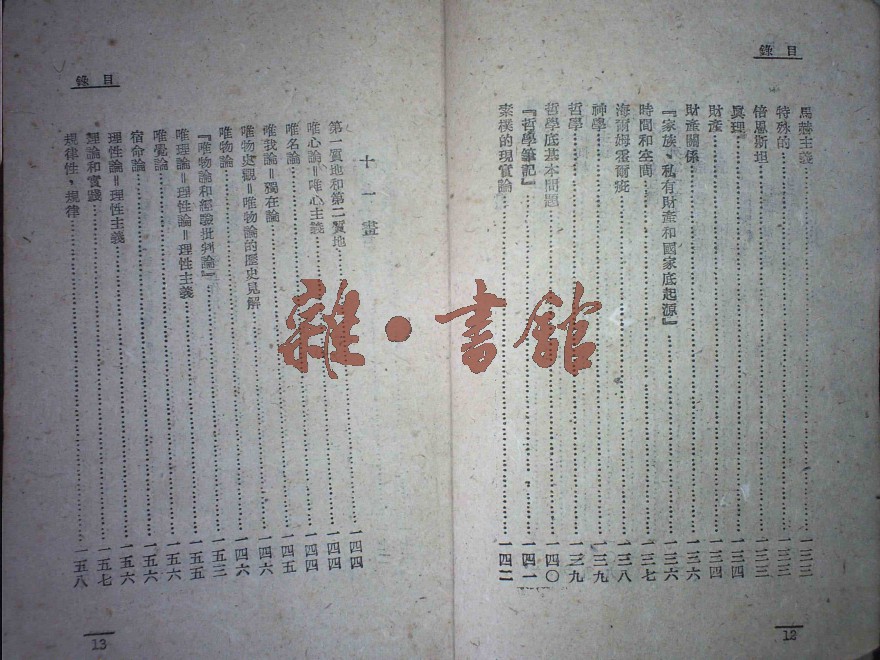 目錄
馬赫主義…………一三三
特殊的…………一三三
倍恩斯坦…………一三三
眞理…………一三四
財產…………一三四
財產關係…………一三六
『家族、私有財產和國家底起源』…………一三六
時間和空間…………一三七
海爾姆霍爾疫…………一三八
神學…………一三九
哲學…………一三九
哲學底基本問題…………一四〇
『哲學筆記』…………一四一
素樸的現實論…………一四二
12
目錄
十一畫
第一質地和第二質地…………一四四
唯心論=唯心主義…………一四四
唯名論…………一四五
唯我論=獨在論…………一四六
唯物史觀=唯物論的歷史見解…………一四六
唯物論…………一五三
『唯物論和經驗批判論』…………一五五
唯理論=理性論=理性主義…………一五六
唯覺論…………一五六
宿命論…………一五六
理性論=理性主義…………一五六
理論和實踐…………一五七
規律性、規律…………一五八
13
雜·書館